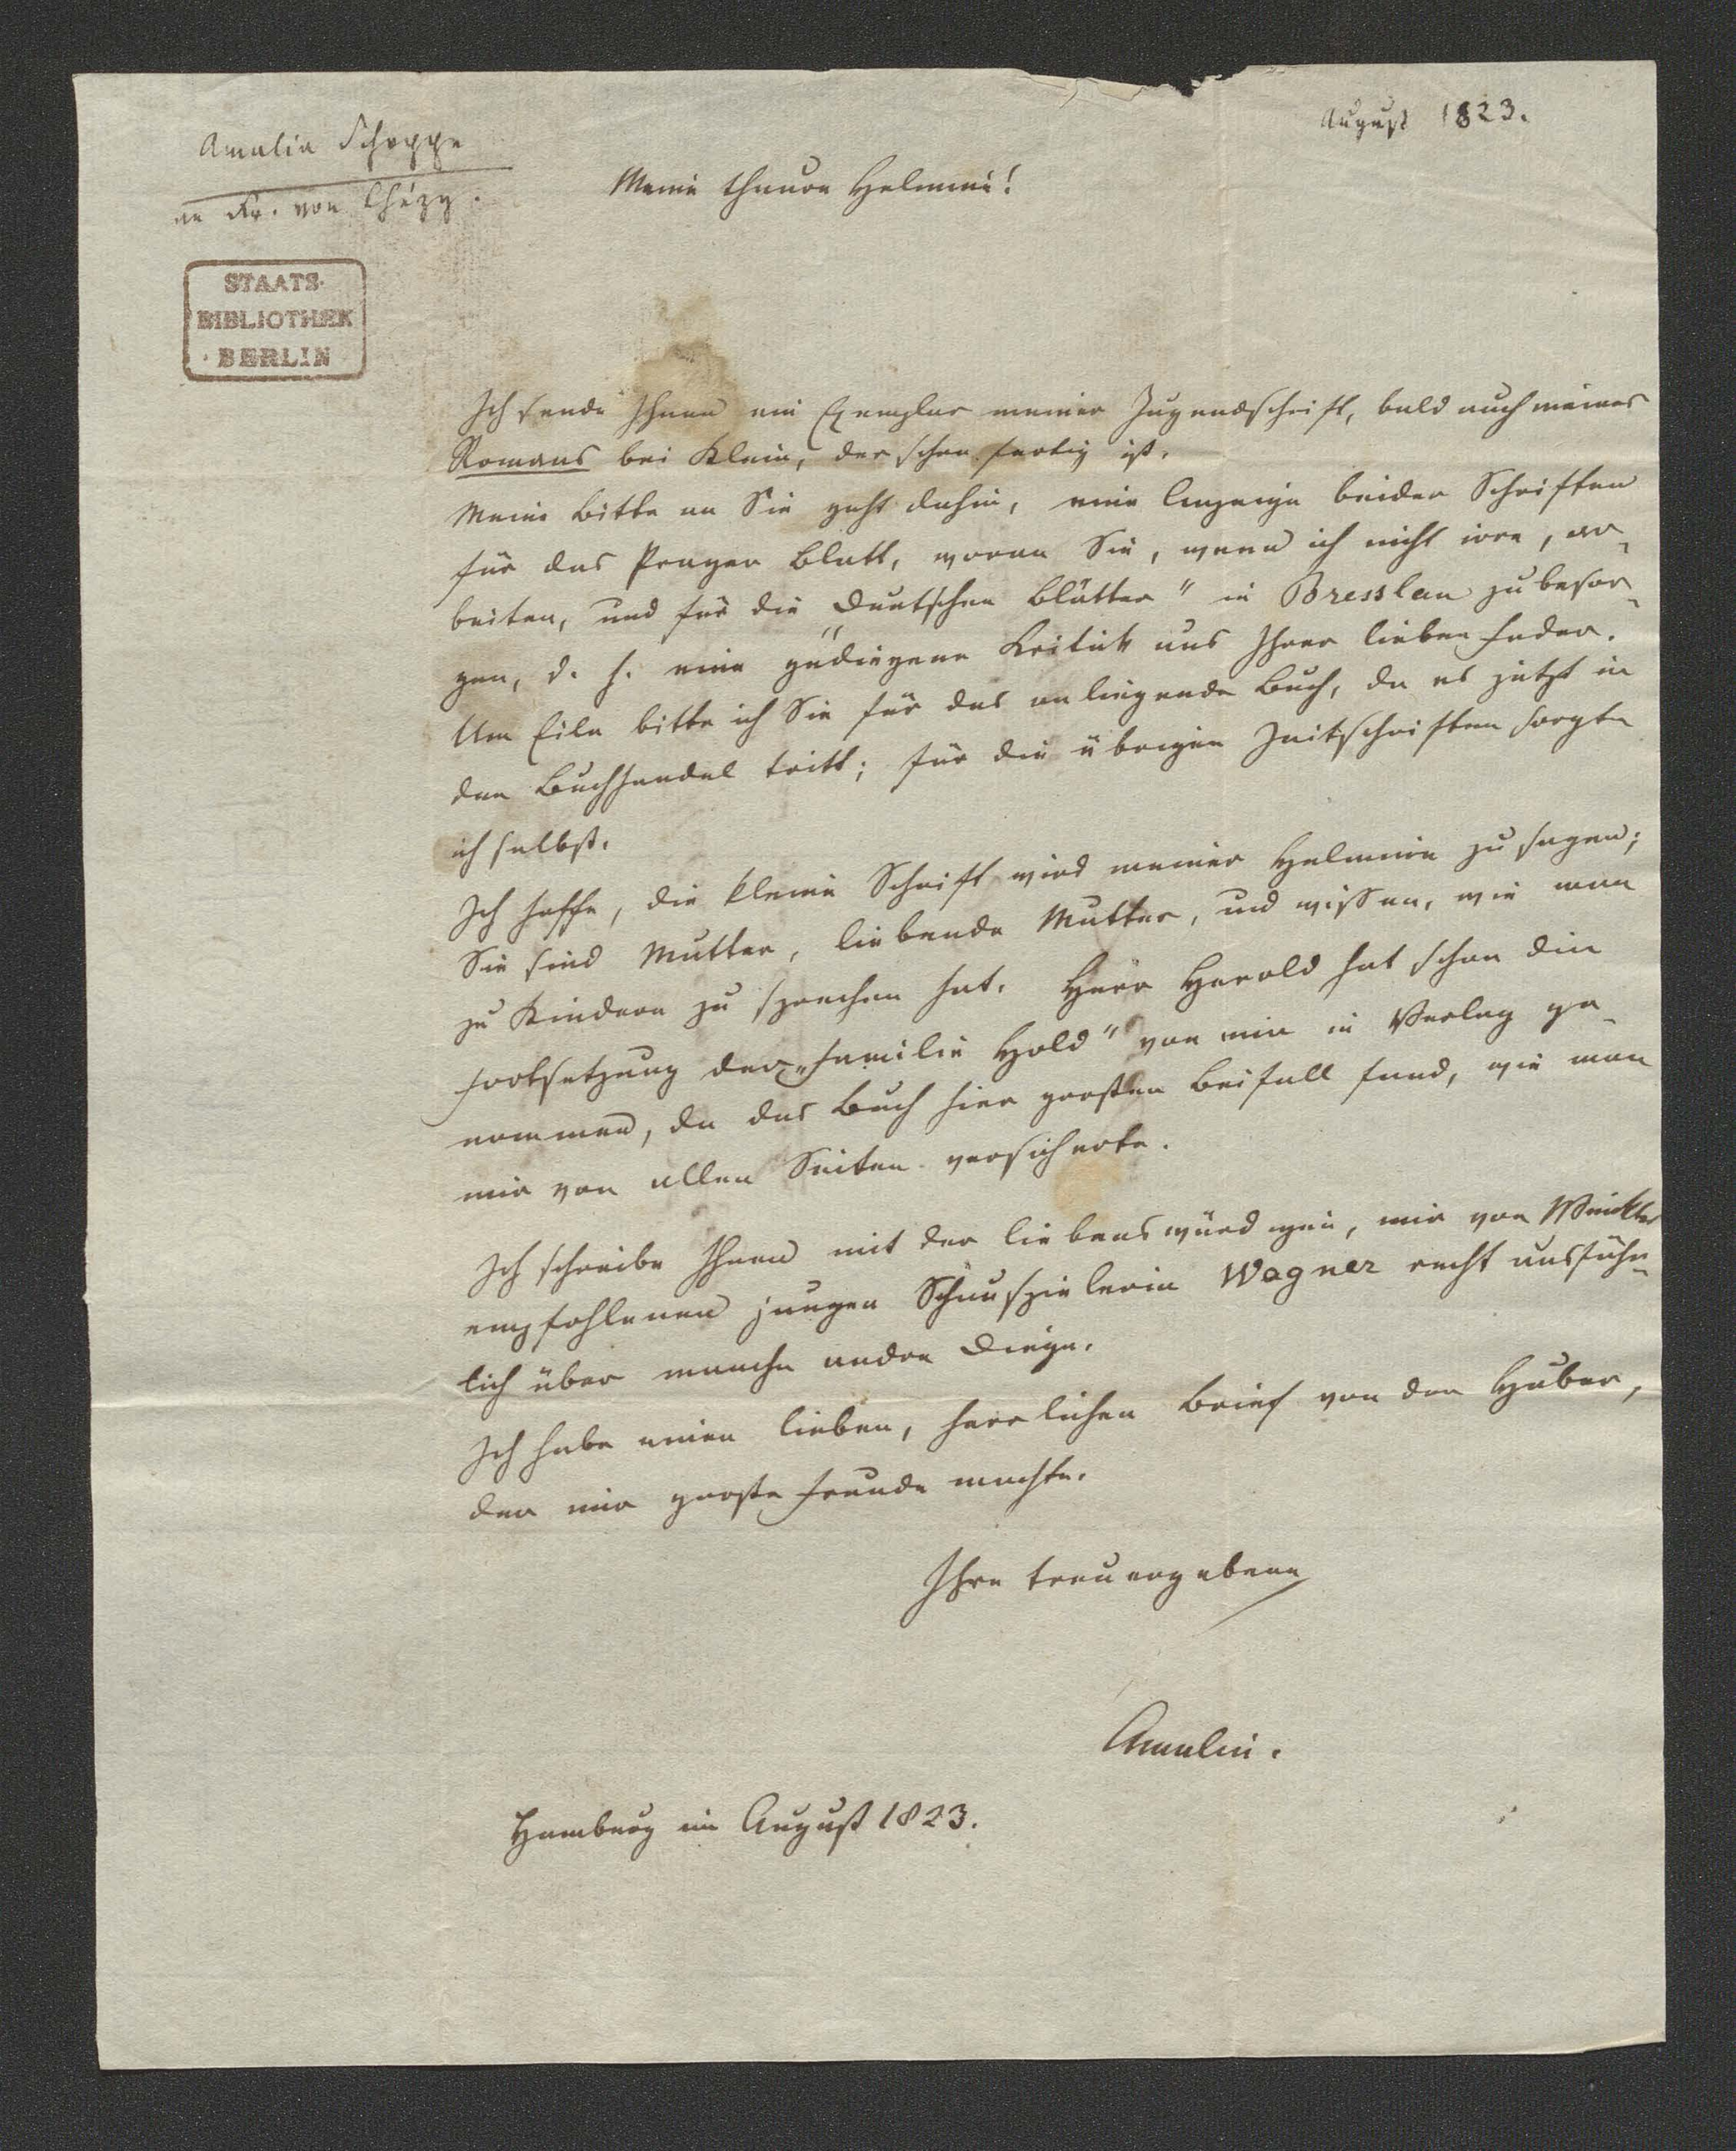 August 1823.
Amalia Schoppe
an Fr. von Chézy.
Meine theure Helmine!
STAATS-
BIBLIOTHEK
BERLIN
Ich sende Ihnen ein Exemplar meiner Jugendschrift, bald auch meines
Romans bei Klein, der schon fertig ist.
Meine Bitte an Sie geht dahin, eine Anzeige beider Schriften
für das Prager Blatt, woran Sie, wenn ich nicht irre, ar-
beiten, und für die „Deutschen Blätter" in Bresslau zu besor-
gen, d. h. eine gediegene Kritik aus Ihrer lieben Feder.
Um Eile bitte ich Sie für das anliegende Buch, da es jetzt in
den Buchhandel tritt; für die übrigen Zeitschriften sorgte
ich selbst.
Ich hoffe, die kleine Schrift wird meiner Helmine zu sagen;
Sie sind Mutter, liebende Mutter, und wissen, wie man
zu Kindern zu sprechen hat. Herr Herold hat schon die
Fortsetzung der „Familie Hold" von mir in Verlag ge-
nommen, da das Buch hier großen Beifall fand, wie man
mir von allen Seiten versicherte.
Ich schreibe Ihnen mit der liebenswürdigen, mir von Winkler
empfohlenen jungen Schauspielerin Wagner recht ausführ-
lich über manche andre Dinge.
Ich habe einen lieben, herrlichen Brief von der Huber,
der mir große Freude machte.
Ihre treuergebene
Amalie.
Hamburg im August 1823.